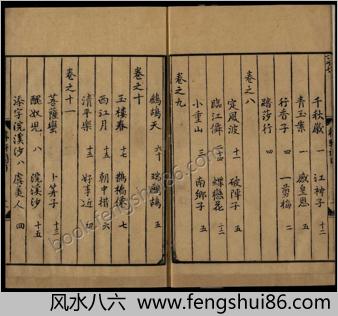 千秋歲 江神子 十二
青玉案 一 感皇恩 五
行香子 三 一剪梅 二
踏莎行
卷之八
定風波 破陣子 五
臨江僊 蝶戀花 十二
小重山 三 南鄉子 五
卷之九
鷓鴣天 六十 瑞鷓鴣 五
卷之十
玉樓春 十七 鵲橋僊 七
西江月 朝中措 六
清平樂 十三 好事近 四
卷之十一
菩薩蠻 卜算子 十三
醜奴兒 八 浣溪沙 十五
添字浣溪沙 八 虞美人 四
book.fengshui86.com
风水八六 www.fengshui86.com